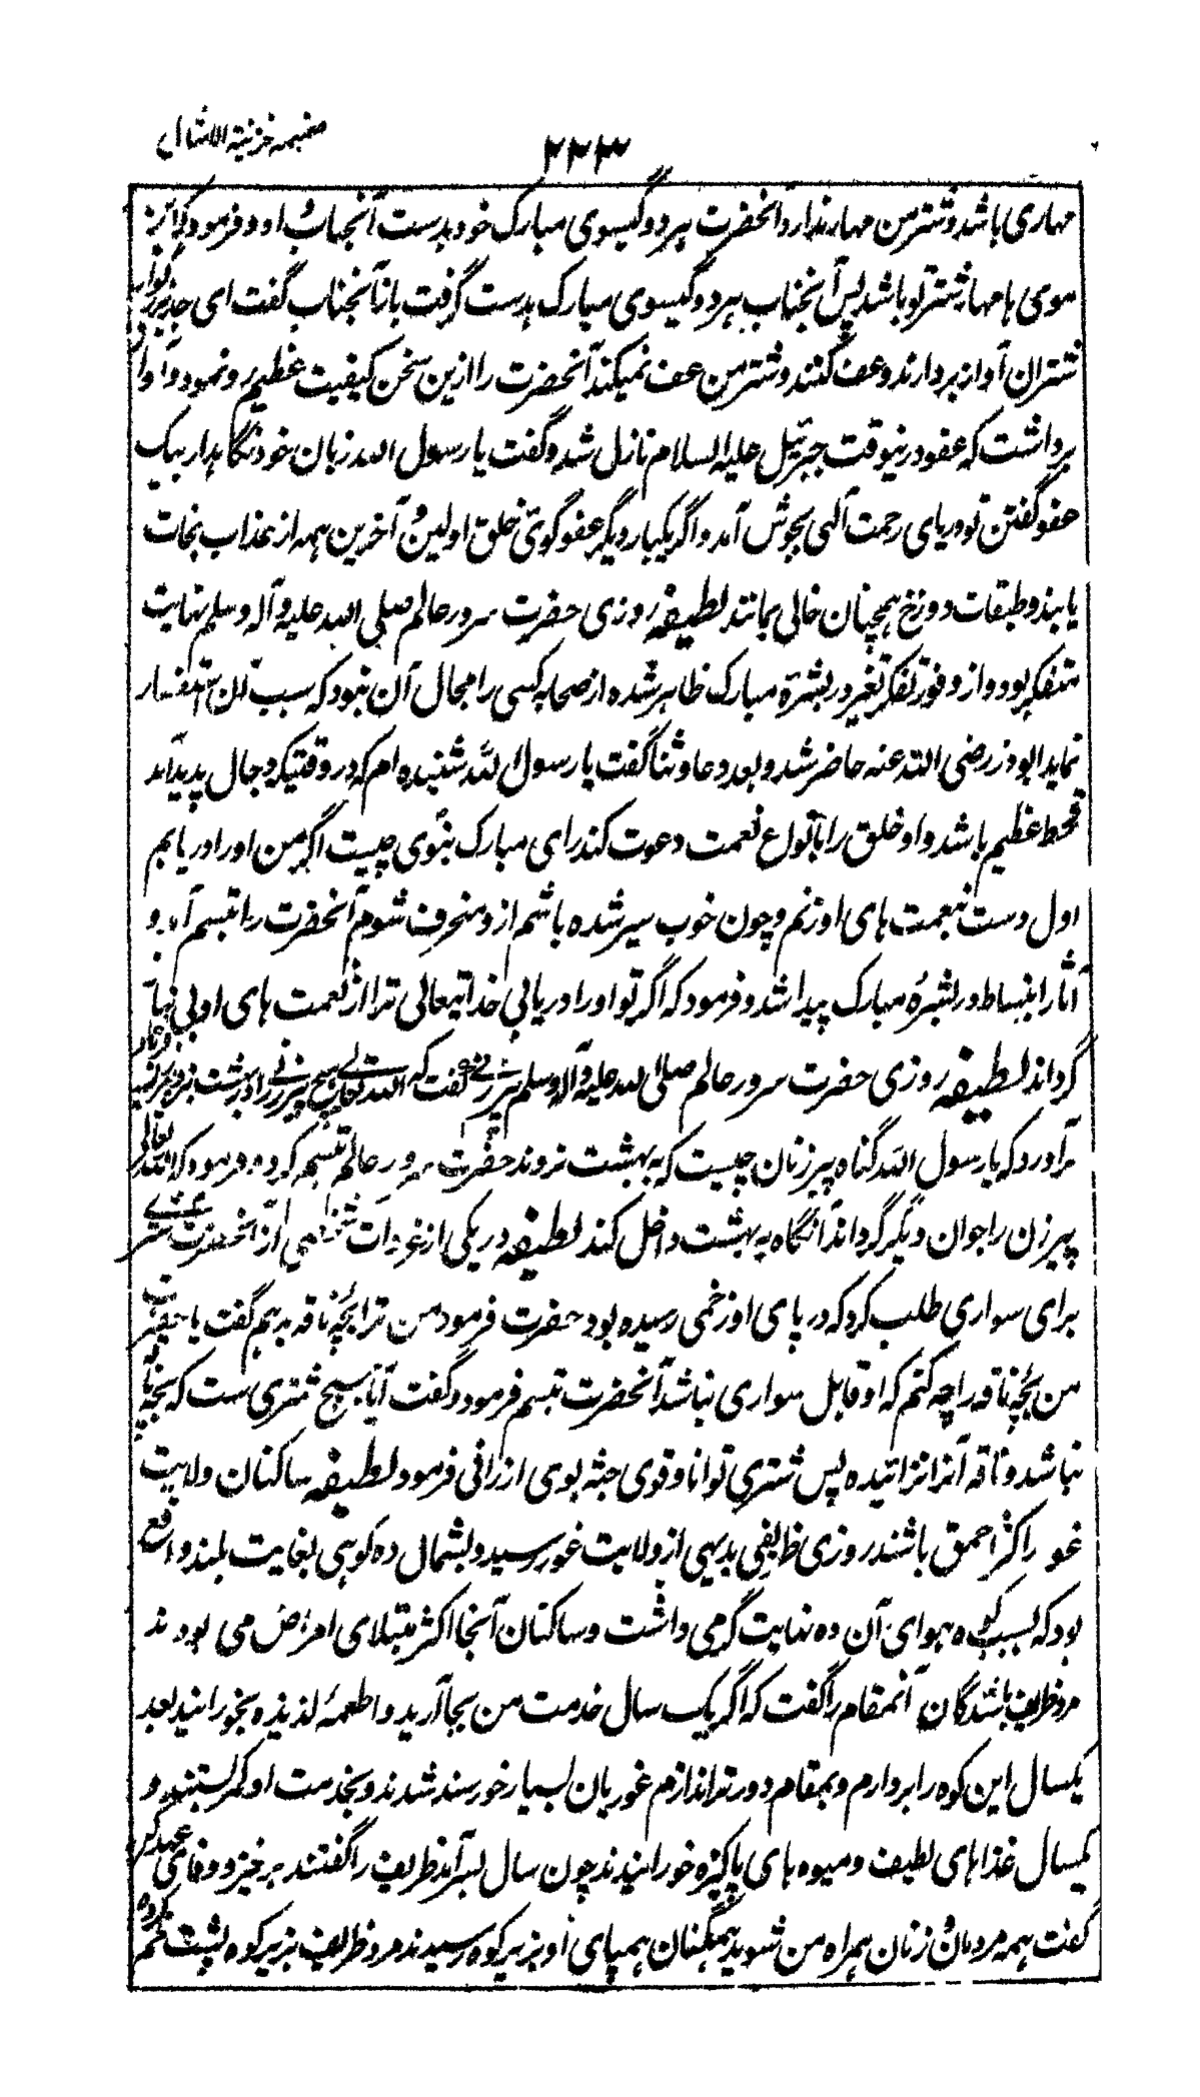 ضمیمه خزینة الامثال
۲۲۳
مهاری باشد و شتر من مهار ندارد آنحضرت هر دو گیسوی مبارک خود بدست آنجناب داد و فرمود که این
موی ها مهار شتر تو باشد پس آنجناب هر دو گیسوی مبارک بدست گرفت باز آنجناب گفت ای جد بزرگوار
شتران آواز بردارند و عف کنند و شتر من عف نمیکند آنحضرت را ازین سخن کیفیت عظیم رو نمود و آواز
برداشت که عفو درینوقت جبرئیل علیه السلام نازل شد و گفت یا رسول الله زبان خود نگاهدار بیک
عفو گفتن تو دریای رحمت آلهی بجوش آمد و اگر یکبار دیگر عفو گوئی خلق اولین و آخرین همه از عذاب نجات
یابند و طبقات دوزخ همچنان خالی بمانند لطیفه روزی حضرت سرور عالم صلی الله علیه و آله وسلم نهایت
متفکر بود و از وفور تفکر تغیر در بشرهٔ مبارک ظاهر شده از صحابه کسی را مجال آن نبود که سبب آن استفسار
نماید ابوذر رضی الله عنه حاضر شد و بعد دعا و ثنا گفت یا رسول الله شنیده ام که در وقتیکه دجال پدید آید
قحط عظیم باشد و او خلق را بانواع نعمت دعوت کند رای مبارک نبوی چیست اگر من او را دریابم
اول دست بنعمت های او زنم و چون خوب سیر شده باشم ازو منحرف شوم آنحضرت را تبسم آمد و
آثار انبساط در بشرهٔ مبارک پیدا شد و فرمود که اگر تو او را دریابی خدایتعالی ترا از نعمت های او بی نیاز
گرداند لطیفه روزی حضرت سرور عالم صلی الله علیه وآله وسلم پیرزنی گفت که الله تعالی هیچ پیرزنی را در بهشت نبرد پیرزن فریاد
برآورد که یا رسول الله گناه پیرزنان چیست که به بهشت نروند حضرت سرور عالم تبسم کرد و فرمود که الله تعالی
پیرزن را جوان دیگر گرداند آنگاه به بهشت داخل کند لطیفه در یکی از غزوات شخصی از آنحضرت شتری
برای سواری طلب کرد که در پای او زخمی رسیده بود حضرت فرمود من ترا بچهٔ ناقه بدهم گفت یا حضرت
من بچهٔ ناقه را چه کنم که او قابل سواری نباشد آنحضرت تبسم فرمود و گفت آیا هیچ شتری ست که بچهٔ ناقه
نباشد و ناقه آنرا نزائیده پس شتری توانا و قوی جثه بوی ارزانی فرمود لطیفه ساکنان ولایت
غور اکثر احمق باشند روزی ظریفی بدیهی از ولایت غور رسید و بشمال ده کوهی بغایت بلند واقع
بود که بسبب کوه هوای آن ده نهایت گرمی داشت و ساکنان آنجا اکثر مبتلای امراض می بودند
مرد ظریف باشندگان آنمقام را گفت که اگر یک سال خدمت من بجا آرید و اطعمهٔ لذیذه بخورانید بعد
یکسال این کوه را بردارم و بمقام دورتر اندازم غوریان بسیار خورسند شدند و بخدمت او کمر بستند و
یکسال غذاهای لطیف و میوه های پاکیزه خورانیدند چون سال بسر آمد ظریف را گفتند برخیز و وفای عهد کن
گفت همه مردمان و زنان همراه من شوید همگنان همپای او بزیر کوه رسیدند مرد ظریف بزیر کوه پشت خم کرده